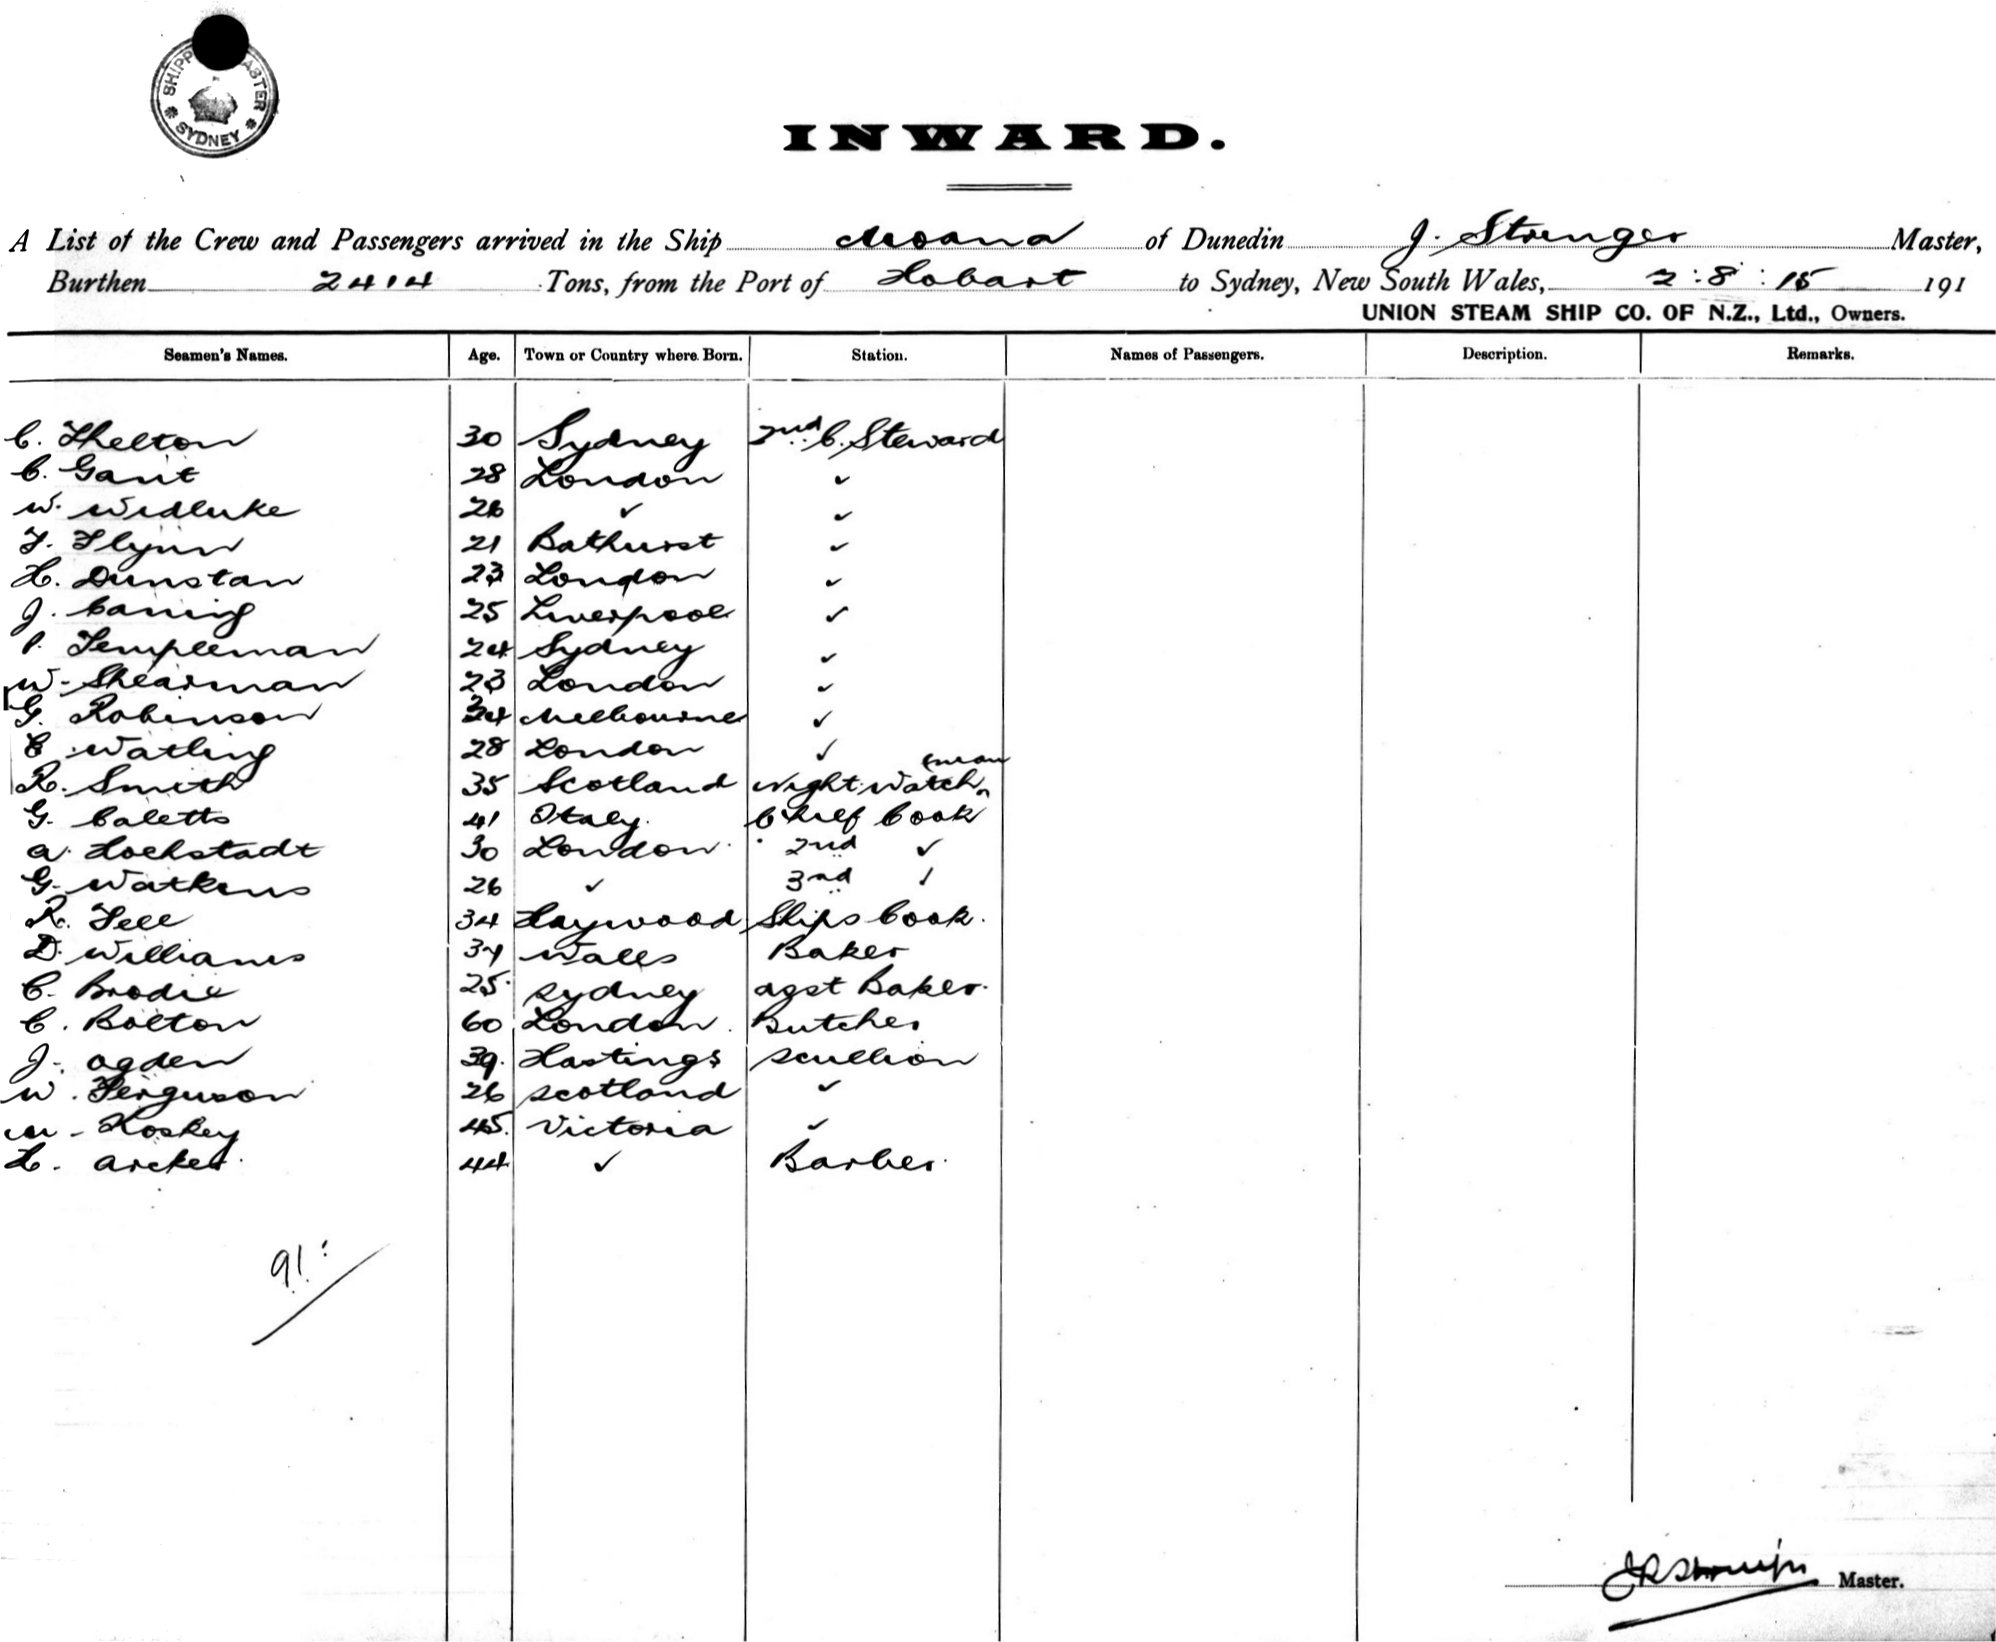 SHIPP ASTER
SYDNEY
INWARD.
A List of the Crew and Passengers arrived in the Ship Moana of Dunedin J. Stringer Master,
Burthen 2414 Tons, from the Port of Hobart to Sydney, New South Wales, 2:8:15 191
UNION STEAM SHIP CO. OF N.Z., Ltd., Owners.
Seamen's Names. Age. Town or Country where Born. Station. Names of Passengers. Description. Remarks.
C. Thelton 30 Sydney 2nd C. Steward
C. Gant 28 London ✓
W. Widluke 26 ✓ ✓
F. Flynn 21 Bathurst ✓
H. Dunstan 23 London ✓
J. Caning 25 Liverpool ✓
P. Templeman 24 Sydney ✓
W. Shearman 23 London ✓
G. Robinson 34 Melbourne ✓
E. Watling 28 London ✓
R. Smith 35 Scotland Night Watchman
G. Caletts 41 Italy. Chief Cook
A. Hochstadt 30 London 2nd ✓
G. Watkins 26 ✓ 3rd ✓
R. Fell 34 Haywood Ships Cook.
D. Williams 34 Wales Baker
C. Brodie 25 Sydney asst Baker.
C. Bolton 60 London. Butcher
J. Ogden 39. Hastings Scullion
W. Ferguson 26 Scotland ✓
M. Hoskey 45. Victoria ✓
H. Archer. 44 ✓ Barber.
91
Master.